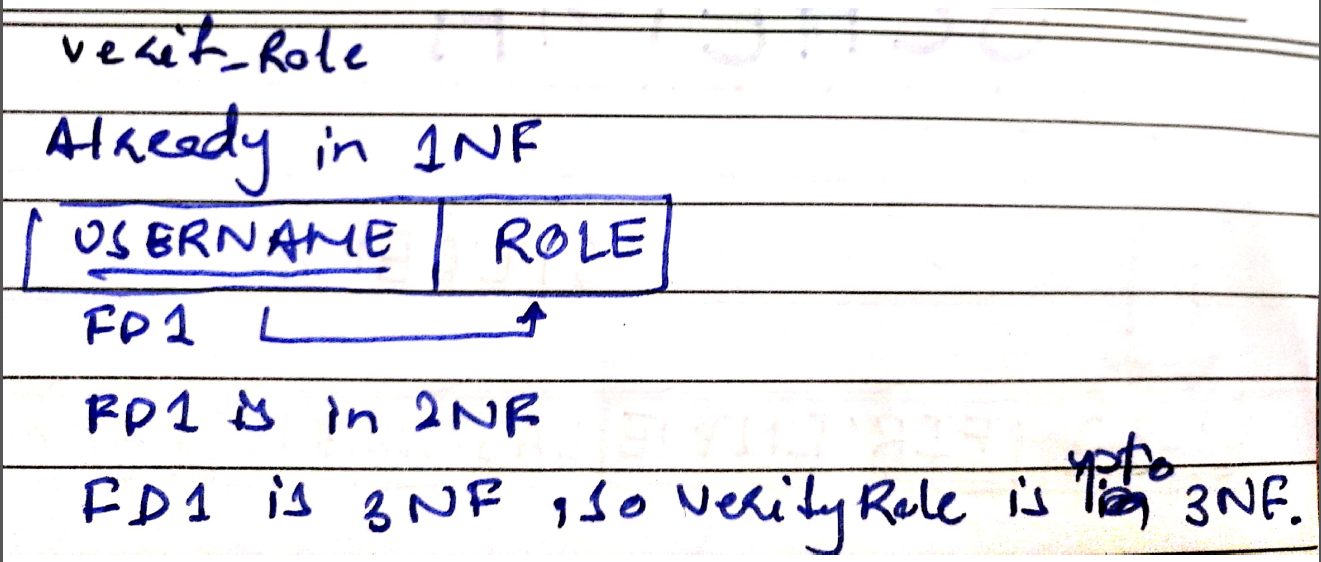 verif_Role
Already in 1NF
USERNAME ROLE
FD1
FD1 is in 2NF
FD1 is 3NF, so verifyRole is upto 3NF.